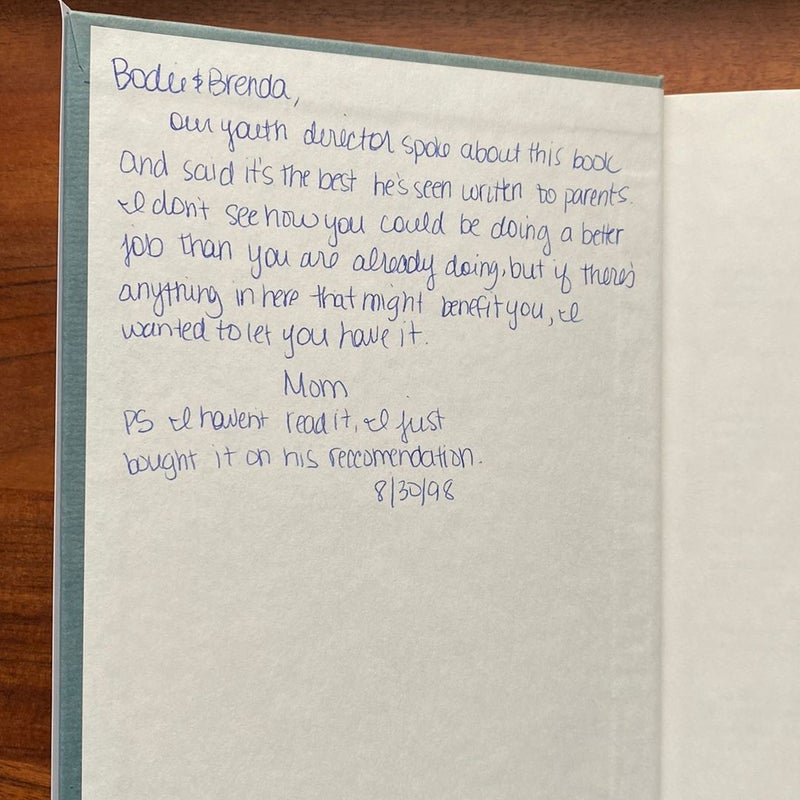 Bodie & Brenda,
our youth director spoke about this book
and said it's the best he's seen written to parents.
I don't see how you could be doing a better
job than you are already doing, but if there's
anything in here that might benefit you, I
wanted to let you have it.
Mom
PS I havent read it, I just
bought it on his reccomendation.
8/30/98